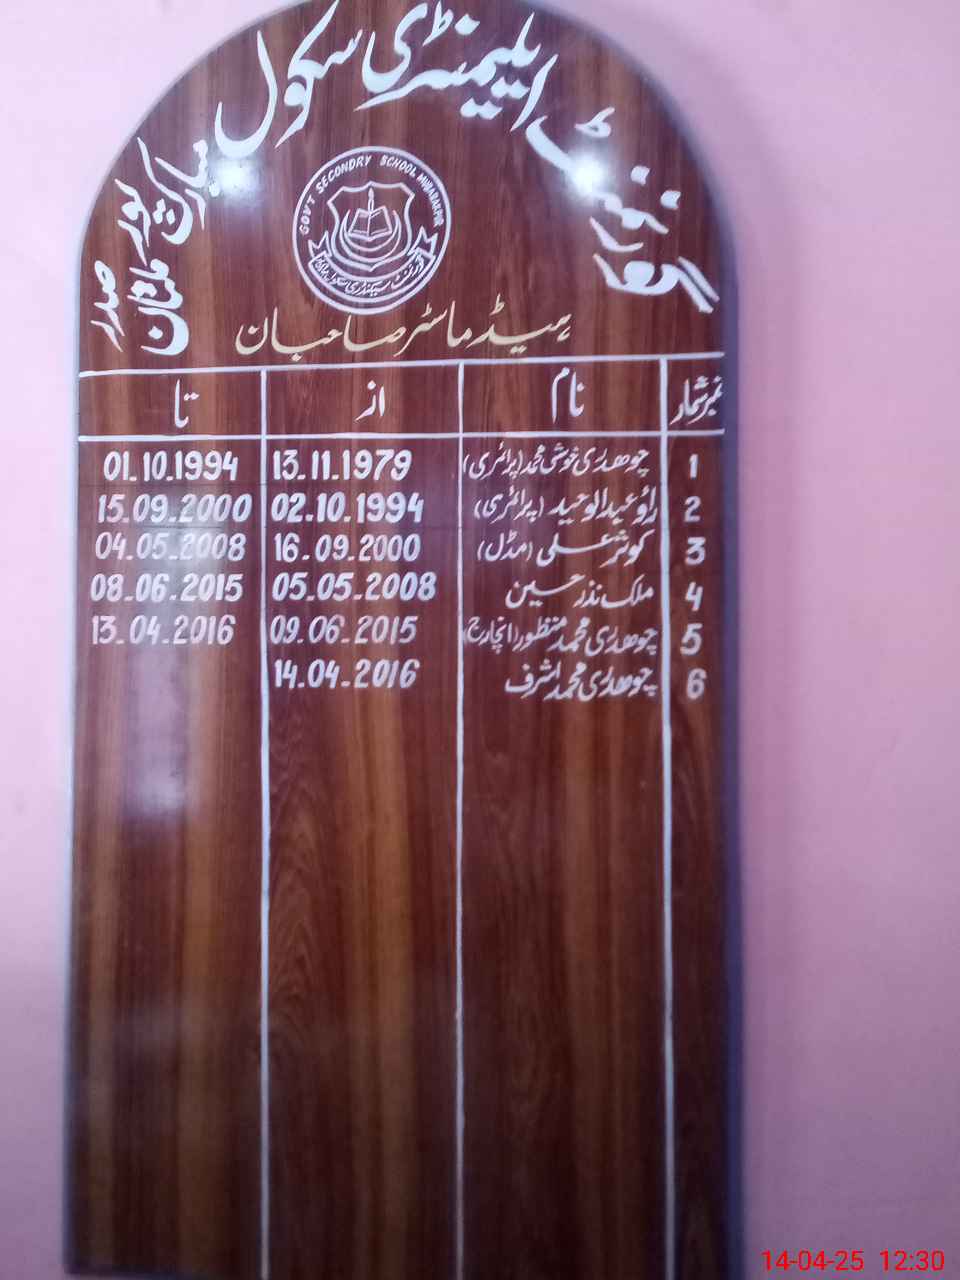 گورنمنٹ ایلیمنٹری سکول مبارک پور ملتان صدر
GOVT SECONDRY SCHOOL MUBARAKPUR
گورنمنٹ سیکنڈری سکول
ہیڈ ماسٹر صاحبان
نمبر شمار نام از تا
1 چوھدری خوشی محمد (پرائمری) 13.11.1979 01.10.1994
2 راؤ عبدالوحید (پرائمری) 02.10.1994 15.09.2000
3 کوثر علی (مڈل) 16.09.2000 04.05.2008
4 ملک نذر حسین 05.05.2008 08.06.2015
5 چوھدری محمد منظور (انچارج) 09.06.2015 13.04.2016
6 چوھدری محمد اشرف 14.04.2016
14-04-25 12:30